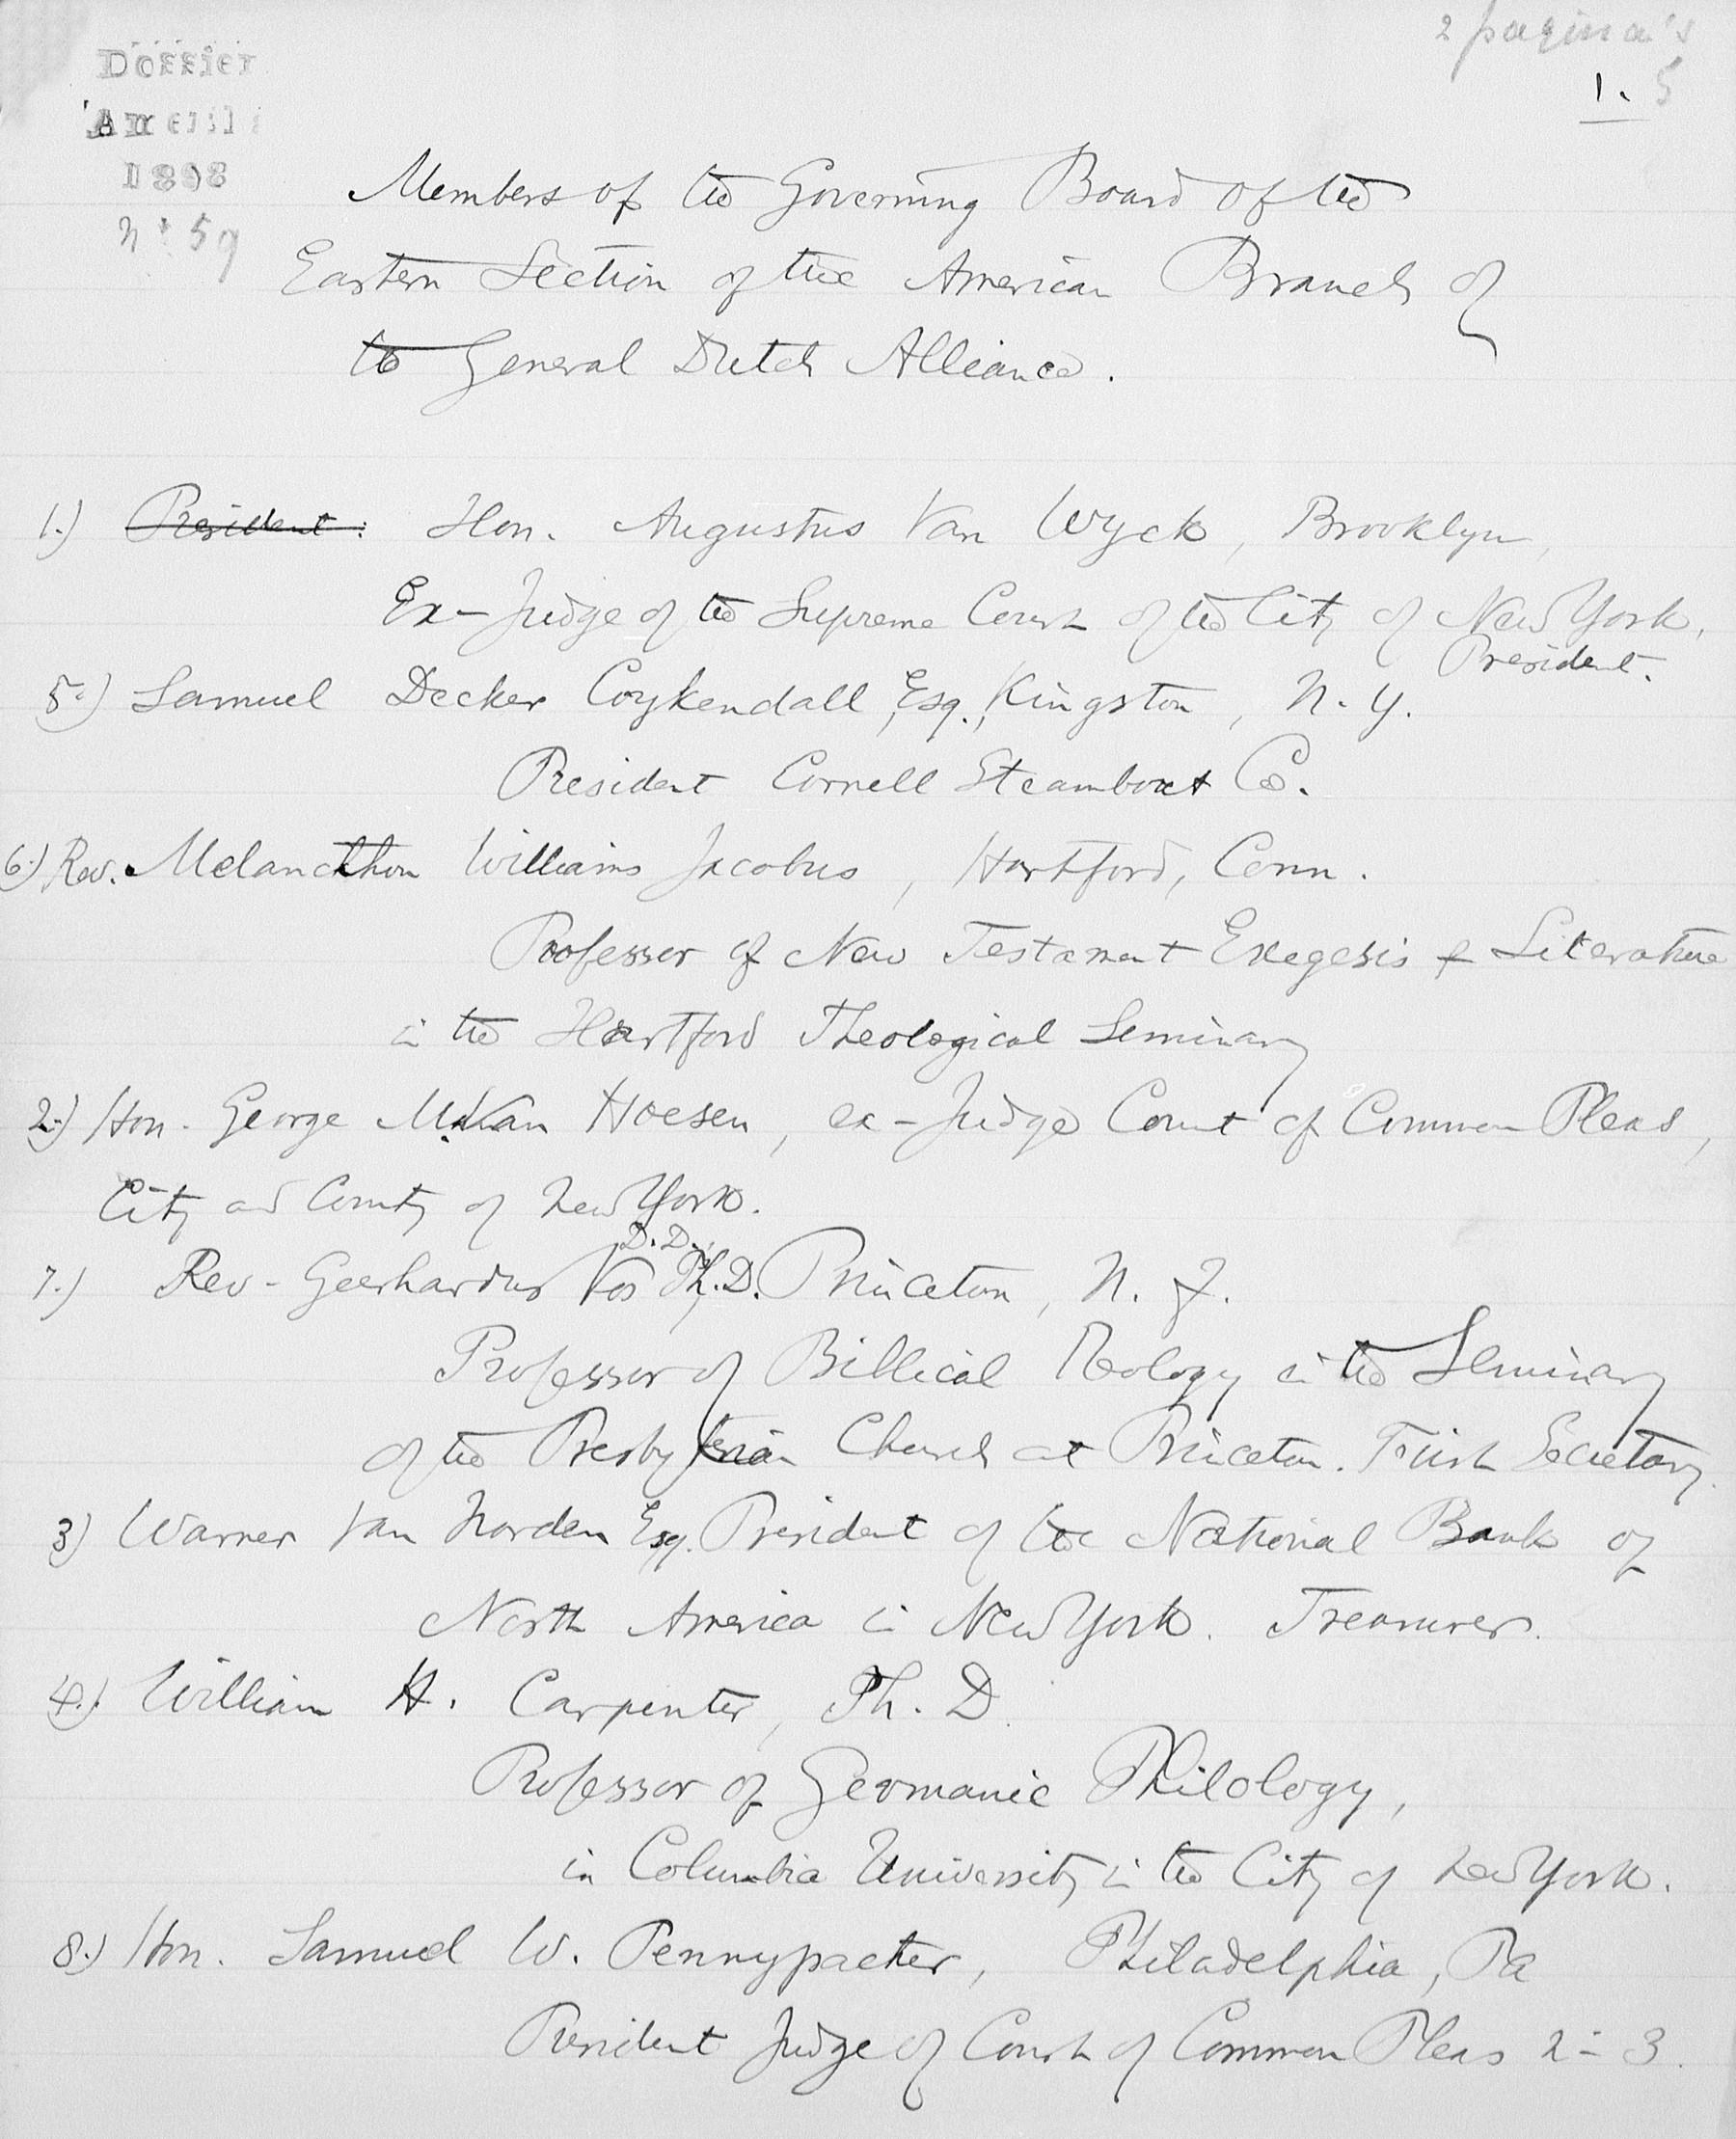 Dossier
1898
No 59
2 pagina's
1. 5
Members of the Governing Board of the
Eastern Section of the American Branch of
the General Dutch Alliance.
1.) President: Hon. Augustus Van Wyck, Brooklyn,
Ex-Judge of the Supreme Court of the City of New York,
President.
5.) Samuel Decker Coykendall, Esq., Kingston, N. Y.
President Cornell Steamboat Co.
6.) Rev. Melancthon Williams Jacobus, Hartford, Conn.
Professor of New Testament Exegesis & Literature
in the Hartford Theological Seminary
2.) Hon. George M. Van Hoesen, ex-Judge Court of Common Pleas,
City and County of New York.
D. D.,
7.) Rev. Geerhardus Vos Ph.D. Princeton, N. J.
Professor of Biblical Theology in the Seminary
of the Presbyterian Church at Princeton. First Secretary.
3) Warner Van Norden Esq. President of the National Bank of
North America in New York. Treasurer.
4.) William H. Carpenter, Ph. D.
Professor of Germanic Philology,
in Columbia University in the City of New York.
8.) Hon. Samuel W. Pennypacker, Philadelphia, Pa
President Judge of Court of Common Pleas 2-3.